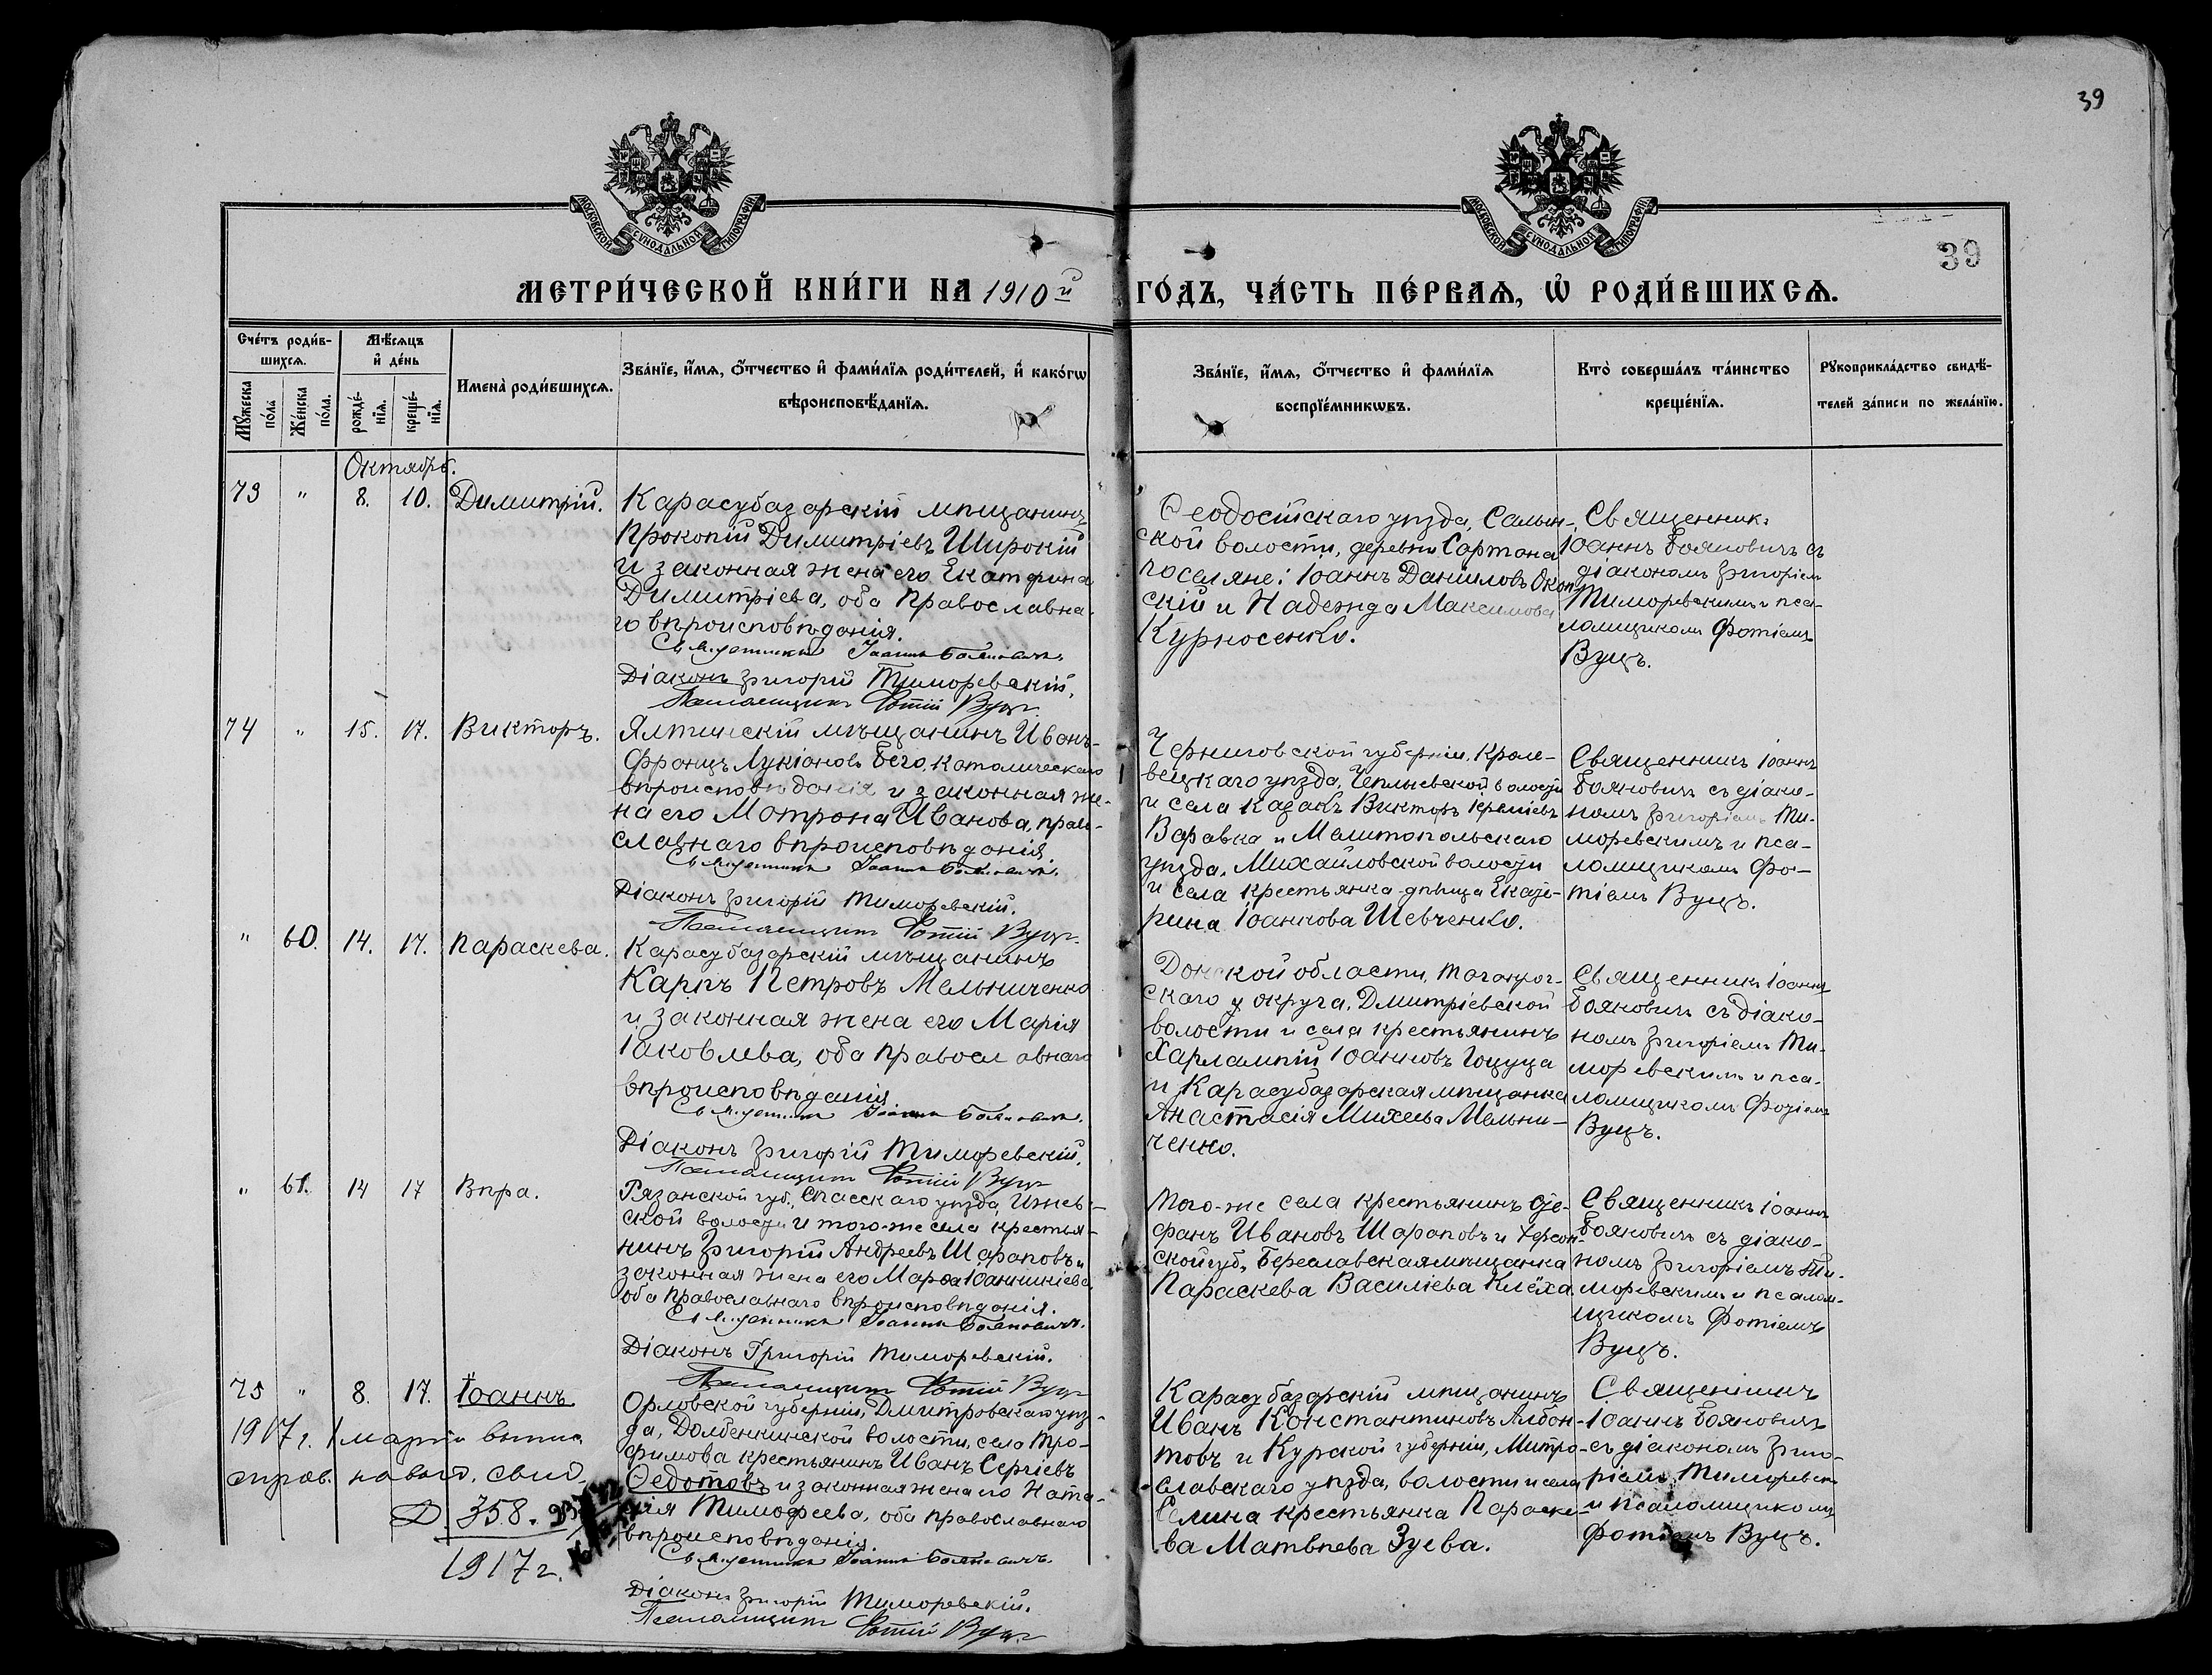 39
МОСКОВСКОЙ СѴНОДАЛЬНОЙ ТИПОГРАФІИ
МОСКОВСКОЙ СѴНОДАЛЬНОЙ ТИПОГРАФІИ
39
МЕТРИ́ЧЕСКОЙ КНИ́ГИ НА 1910й ГО́ДЪ, ЧА́СТЬ ПЕ́РВАѦ, Ѡ҆ РОДИ́ВШИХСѦ.
Сче́тъ роди́в-
шихсѧ.
Мꙋ́жеска по́ла
Же́нска по́ла.
Мѣ́сѧцъ
и҆ де́нь
рожде́-
нїѧ.
креще́-
нїѧ.
Имена̀ роди́вшихсѧ.
Зва́нїе, и҆́мѧ, ѻ҆́тчество и҆ фами́лїѧ роди́телей, и҆ како́гѡ
вѣроисповѣ́данїѧ.
Зва́нїе, и҆́мѧ, ѻ҆́тчество и҆ фами́лїѧ
воспрїе́мникѡвъ.
Кто̀ соверша́лъ та́инство
креще́нїѧ.
Рꙋкоприкла́дство свидѣ́-
телей за́писи по жела́нїю.
Октябрь.
73 " 8. 10. Димитрій.
Карасубазарскій мѣщанинъ
Прокопій Димитріевъ Широкій
и законная жена его Екатерина
Димитріева, оба православна-
го вѣроисповѣданія.
Священникъ Іоаннъ Бояновичъ.
Діаконъ Григорій Тиморевскій.
Псаломщикъ Фотій Вуцъ.
Ѳеодосійскаго уѣзда,
ской волости, деревни Сартана
поселяне: Іоаннъ Даніиловъ
скій и Надежда Максимова
Курносенко.
Священник
Іоаннъ Бояновичъ съ
діакономъ Григоріем
Тиморевскимъ и пса-
ломщиком Фотіемъ
Вуцъ.
74 " 15. 17. Викторъ.
Ялтинскій мѣщанинъ Иванъ-
Францъ Лукіановъ Бего, католическаго
вѣроисповѣданія и законная же-
на его Мотрона Иванова, право-
славнаго вѣроисповѣданія.
Священникъ Іоаннъ Бояновичъ.
Діаконъ Григорій Тиморевскій.
Псаломщикъ Фотій Вуцъ.
Черниговской губерніи, Кроле-
вецкаго уѣзда, волости
и села казакъ Викторъ
Варавка и Мелитопольскаго
уѣзда, Михайловской волости
и села крестьянка дѣвица Екате-
рина Іоаннова Шевченко.
Священникъ Іоаннъ
Бояновичъ съ діако-
номъ Григоріемъ Ти-
моревскимъ и пса-
ломщикомъ Фо-
тіемъ Вуцъ.
" 60. 14. 17. Параскева.
Карасубазарскій мѣщанинъ
Карпъ Петровъ Мельниченко
и законная жена его Марія
Іаковлева, оба православнаго
вѣроисповѣданія
Священникъ Іоаннъ Бояновичъ.
Діаконъ Григорій Тиморевскій.
Псаломщикъ Фотій Вуцъ
Донской области, Таганрог-
скаго у округа, Дмитріевской
волости и села крестьянинъ
Харлампій Іоанновъ Гоцуца
и Карасубазарская мѣщанка
Анастасія Михеева Мельни-
ченко.
Священникъ Іоаннъ
Бояновичъ съ діако-
номъ Григоріемъ Ти-
моревскимъ и пса-
ломщикомъ Фотіемъ
Вуцъ.
" 61. 14 17 Вѣра.
Рязанской губ., Спасскаго уѣзда, Ижев-
ской волости и того-же села крестья-
нинъ Григорій Андреевъ Шараповъ и
законная жена его Марѳа Іоанникіева,
оба православнаго вѣроисповѣданія.
Священникъ Іоаннъ Бояновичъ.
Діаконъ Григорій Тиморевскій.
Псаломщикъ Фотій Вуцъ
Того-же села крестьянинъ Сте-
фанъ Ивановъ Шараповъ и Херсон-
ской губ., Береславская мѣщанка
Параскева Василіева Клёха
Священникъ Іоаннъ
Бояновичъ съ діако-
номъ Григоріемъ Ти-
моревскимъ и псалом-
щикомъ Фотіемъ
Вуцъ.
75 " 8. 17. Іоаннъ
Орловской губерніи, Дмитровскаго уѣз-
да, Долбенкинской волости, села Тро-
фимова крестьянинъ Иванъ Сергіевъ
Ѳедотовъ и законная жена его Ната-
лія Тимофеева, оба православнаго
вѣроисповѣданія.
Священникъ Іоаннъ Бояновичъ.
Діаконъ Григорій Тиморевскій.
Псаломщикъ Фотій Вуцъ
Карасубазарскій мѣщанинъ
Иванъ Константиновъ Албон-
товъ и Курской губерніи, Митро-
славскаго уѣзда, волости и села
Елина крестьянка Параске-
ва Матвѣева Зуева.
Священникъ
Іоаннъ Бояновичъ
съ діакономъ Григо-
ріемъ Тиморевск
и псаломщикомъ
Фотіемъ Вуцъ.
1917 г. 1 марта
Д. 358.
1917 г.